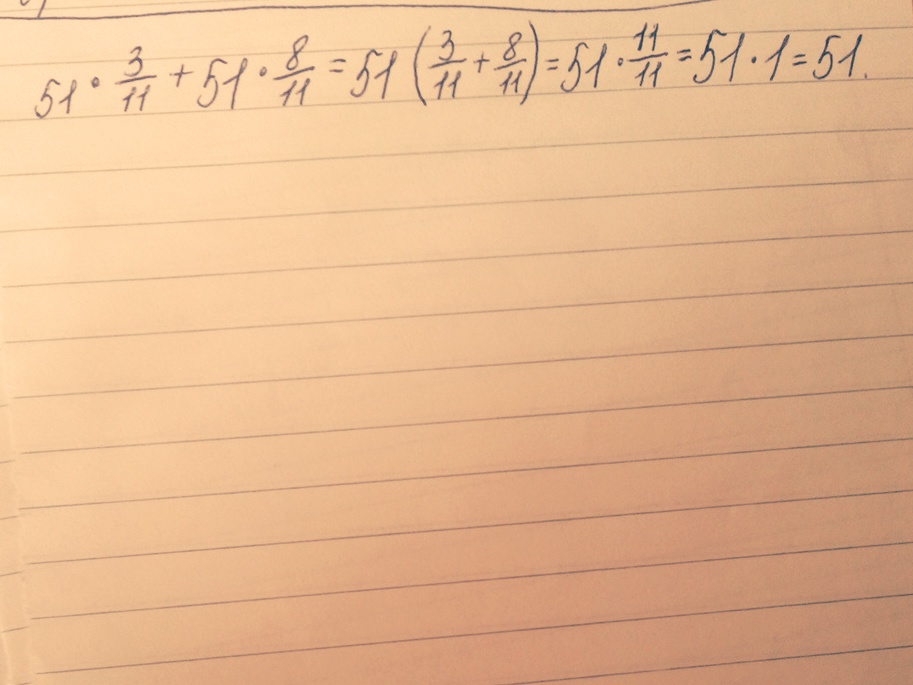 51 · 3/11 + 51 · 8/11 = 51 (3/11 + 8/11) = 51 · 11/11 = 51 · 1 = 51.